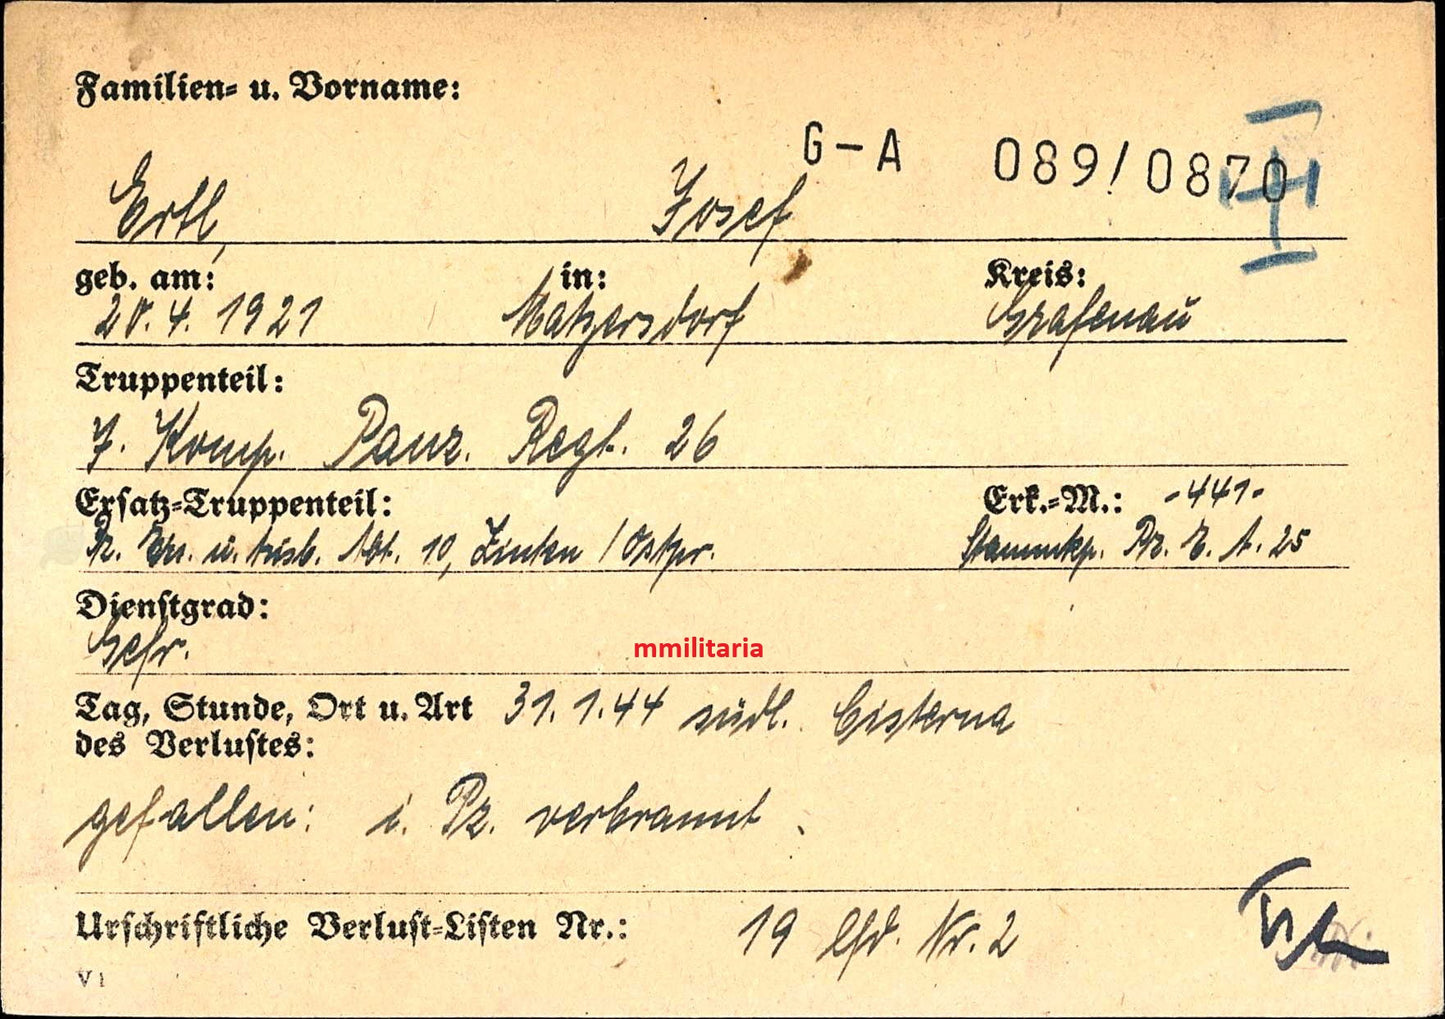 Familien- u. Vorname:
G-A 089/0870
Ertl, Josef
geb. am: in: Kreis:
20.4.1921 Matzersdorf Grafenau
Truppenteil:
7. Komp. Panz. Regt. 26
Ersatz-Truppenteil: Erk.-M.: -441-
Pz. Ers. u. Ausb. Abt. 10, Zinten / Ostpr. Stammkp. Pz. E. A. 25
Dienstgrad:
Gefr.
mmilitaria
Tag, Stunde, Ort u. Art 31.1.44 südl. Cisterna
des Verlustes:
gefallen: i. Pz. verbrannt.
Urschriftliche Verlust-Listen Nr.: 19 lfd. Nr. 2
V 1